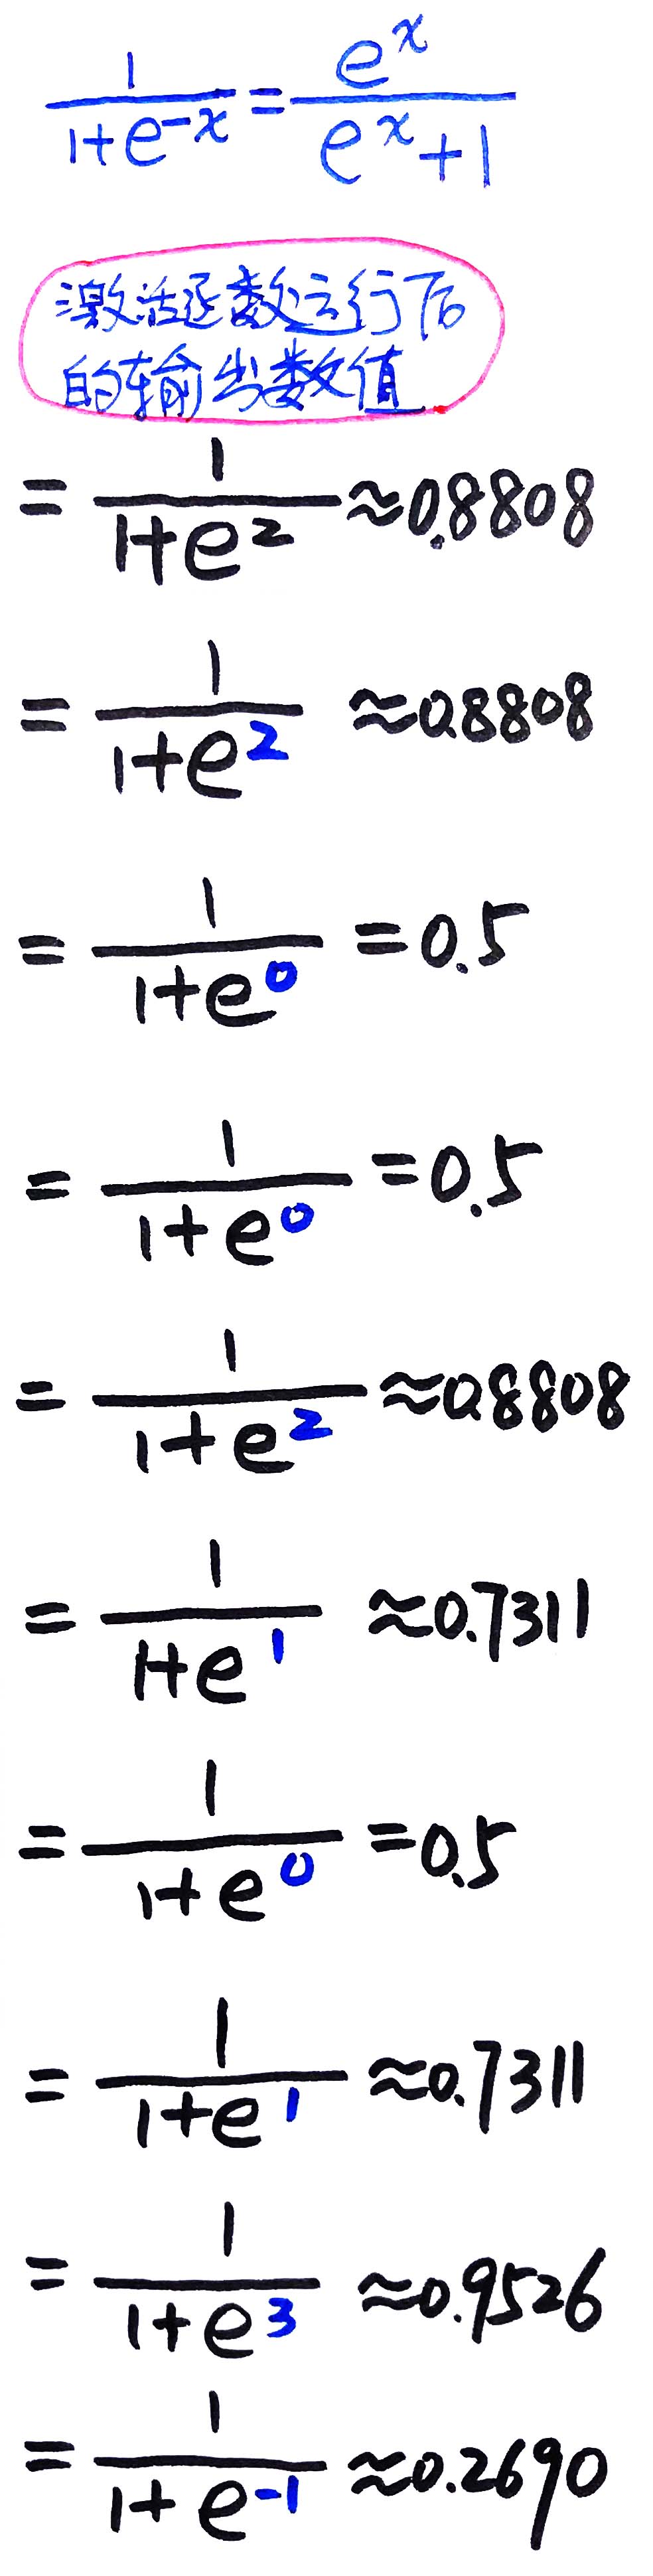 1/(1+e^-x) = e^x/(e^x+1)
激活函数运行后
的输出数值
= 1/(1+e^2) ≈0.8808
= 1/(1+e^2) ≈0.8808
= 1/(1+e^0) = 0.5
= 1/(1+e^0) = 0.5
= 1/(1+e^2) ≈0.8808
= 1/(1+e^1) ≈0.7311
= 1/(1+e^0) = 0.5
= 1/(1+e^1) ≈0.7311
= 1/(1+e^3) ≈0.9526
= 1/(1+e^-1) ≈0.2690